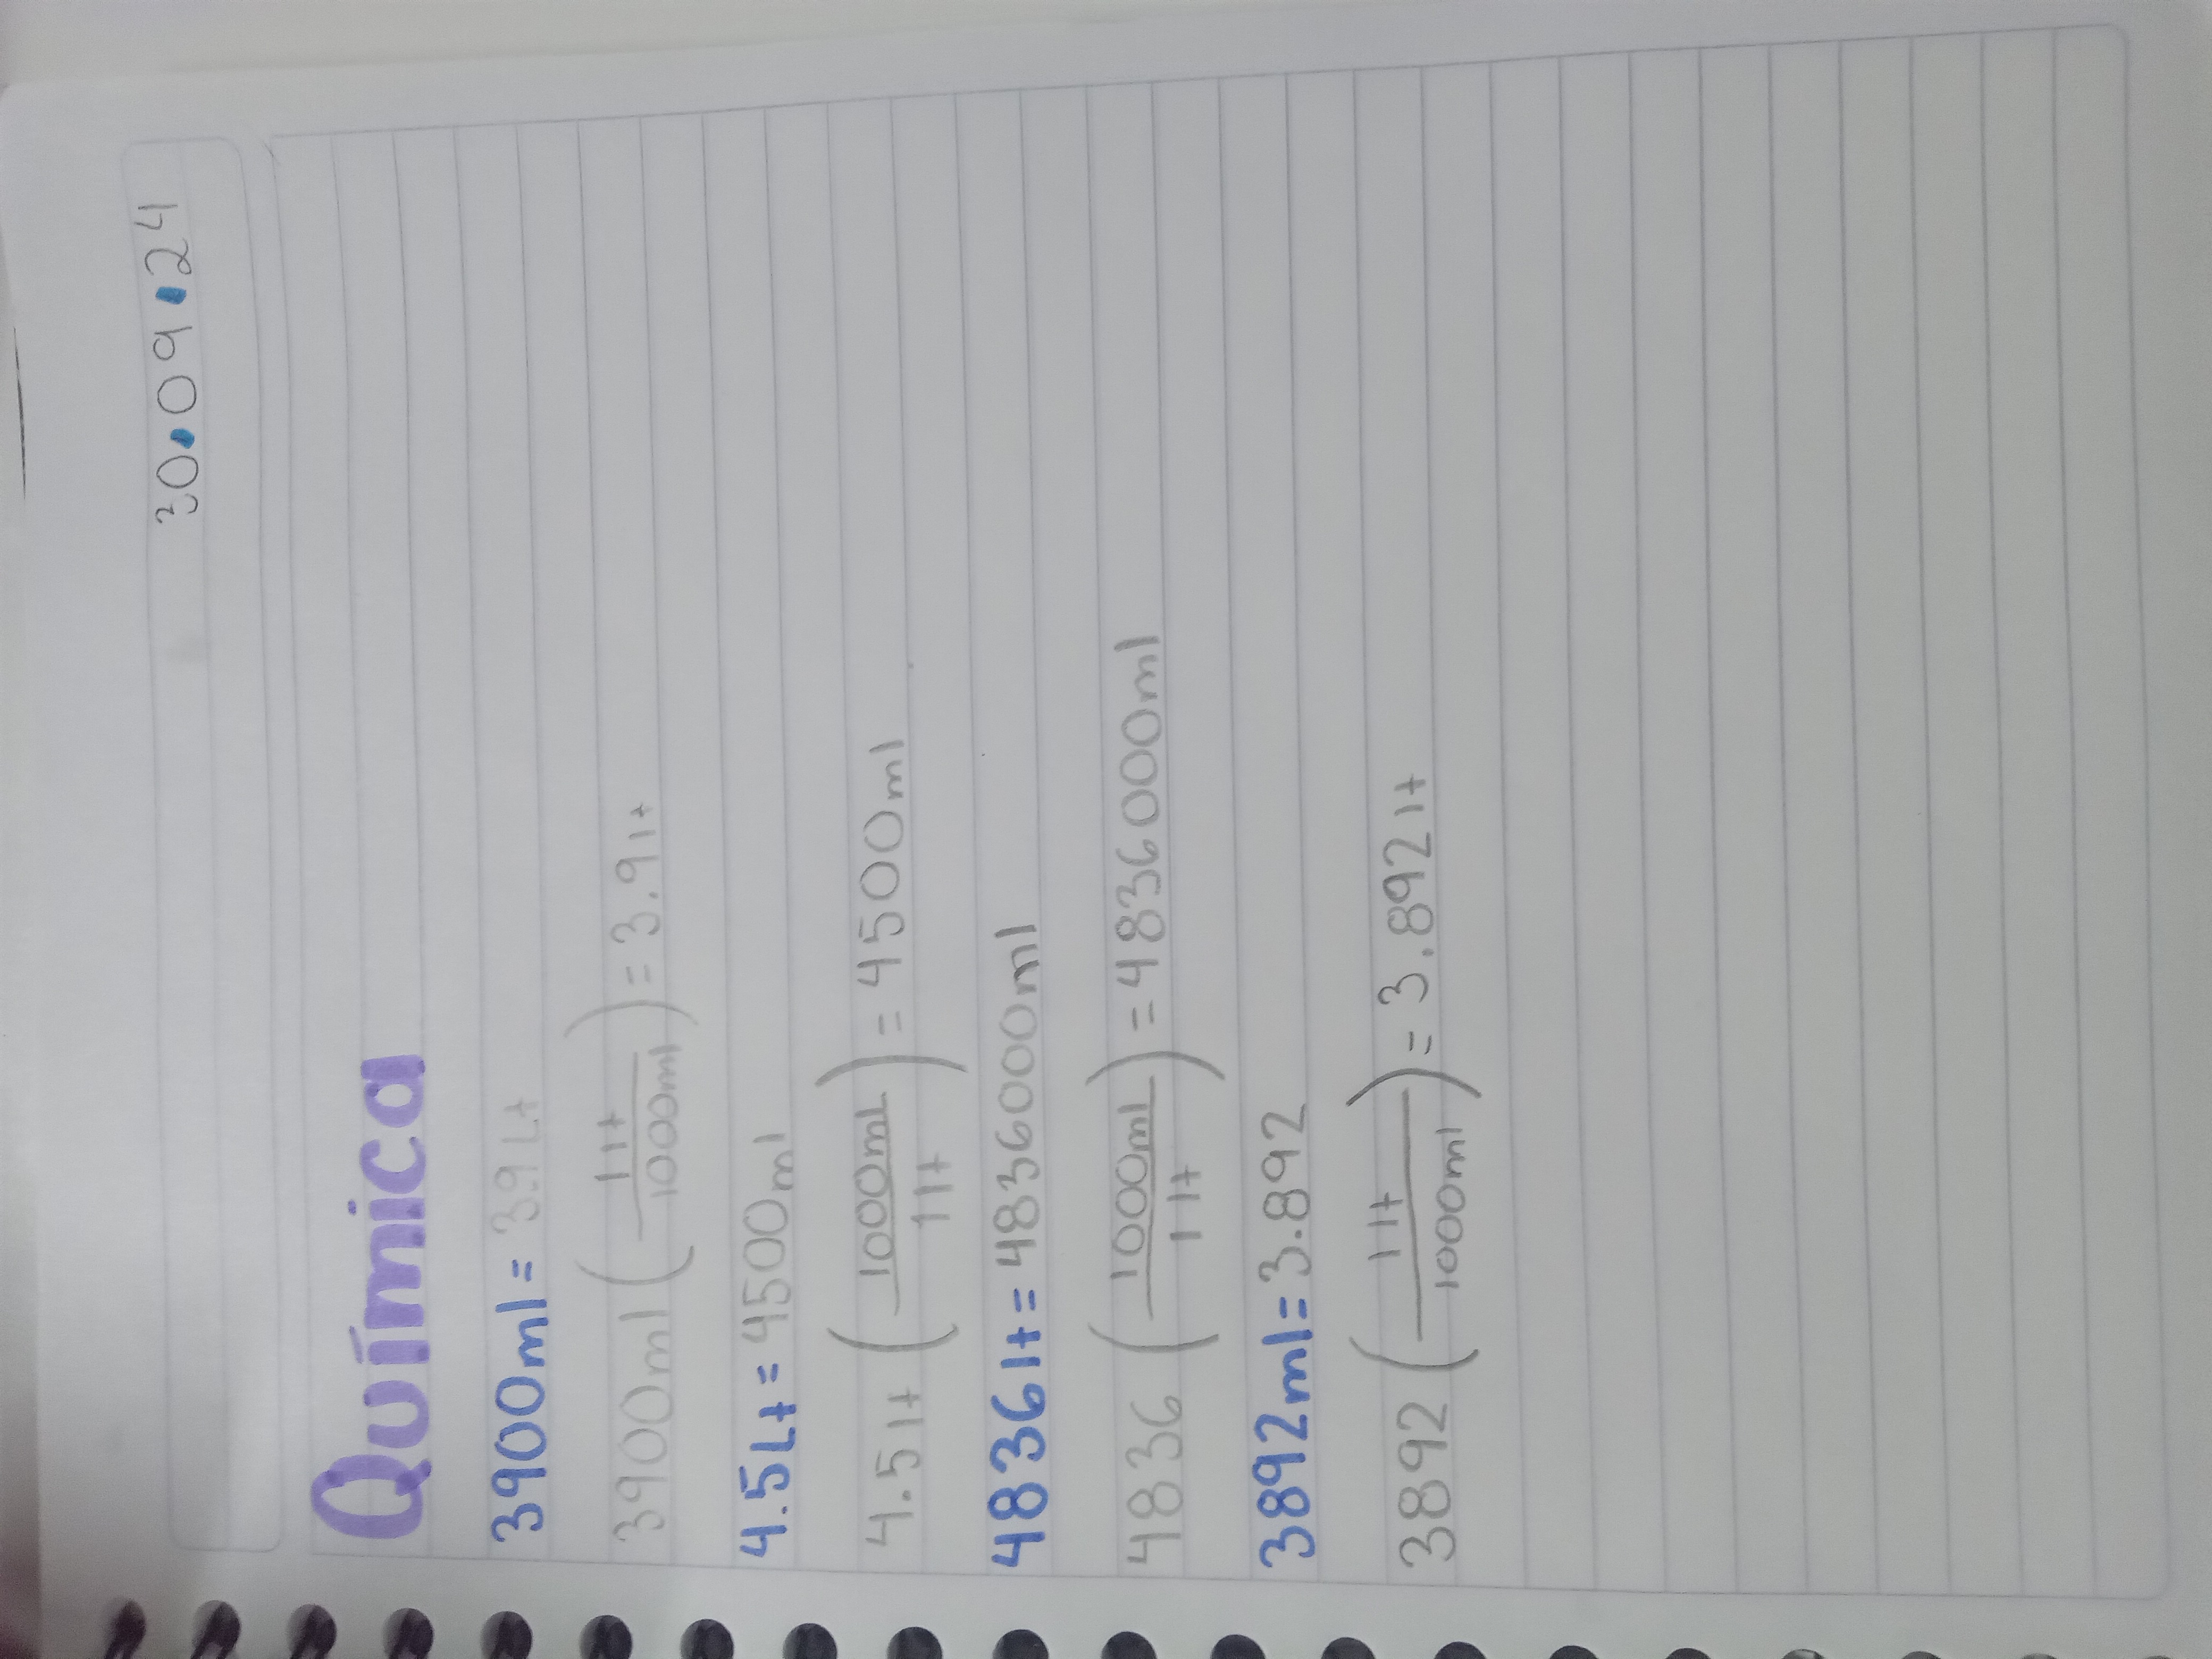 30.09.24
Química
3900ml = 3.9 Lt
3900ml (1lt / 1000ml) = 3.9lt
4.5Lt = 4500ml
4.5lt (1000mL / 1lt) = 4500ml
4836lt = 4836000ml
4836 (1000ml / 1lt) = 4836000ml
3892ml = 3.892
3892 (1lt / 1000ml) = 3.892lt